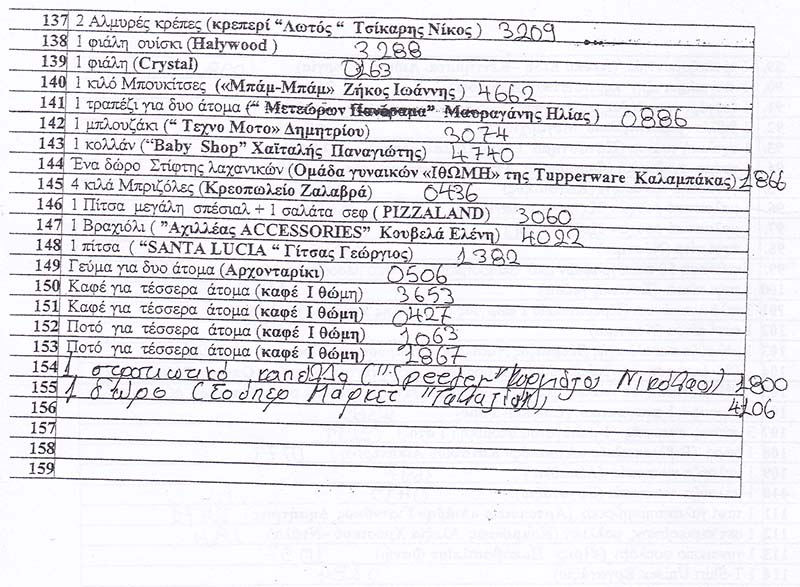 137 2 Αλμυρές κρέπες (κρεπερί “Λωτός “ Τσίκαρης Νίκος ) 3209
138 1 φιάλη ουίσκι (Halywood ) 3288
139 1 φιάλη (Crystal) 0263
140 1 κιλό Μπουκίτσες («Μπάμ-Μπάμ» Ζήκος Ιωάννης ) 4662
141 1 τραπέζι για δυο άτομα (“ Μετεώρων Πανόραμα” Μαυραγάνης Ηλίας ) 0886
142 1 μπλουζάκι (“ Τεχνο Μοτο» Δημητρίου) 3074
143 1 κολλάν (“Baby Shop” Χαϊταλής Παναγιώτης) 4740
144 Ένα δώρο Στίφτης λαχανικών (Ομάδα γυναικών «ΙΘΩΜΗ» της Tupperware Καλαμπάκας) 1866
145 4 κιλά Μπριζόλες (Κρεοπωλείο Ζαλαβρά) 0436
146 1 Πίτσα μεγάλη σπέσιαλ + 1 σαλάτα σεφ ( PIZZALAND) 3060
147 1 Βραχιόλι ( ”Αχιλλέας ACCESSORIES” Κουβελά Ελένη) 4022
148 1 πίτσα ( “SANTA LUCIA “ Γίτσας Γεώργιος) 1382
149 Γεύμα για δυο άτομα (Αρχονταρίκι) 0506
150 Καφέ για τέσσερα άτομα (καφέ Ι θώμη) 3653
151 Καφέ για τέσσερα άτομα (καφέ Ι θώμη) 0427
152 Ποτό για τέσσερα άτομα (καφέ Ι θώμη) 1063
153 Ποτό για τέσσερα άτομα (καφέ Ι θώμη) 2867
154 1 στρατιωτικό καπέλλο ("Speeder" Νικόλαος) 1800
155 1 δώρο (Σούπερ Μάρκετ 4206
156
157
158
159